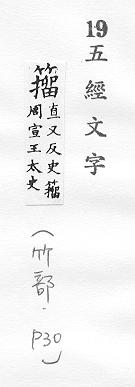 19
五經文字
籀
直又反史籀
周宣王太史
(竹部·P30)